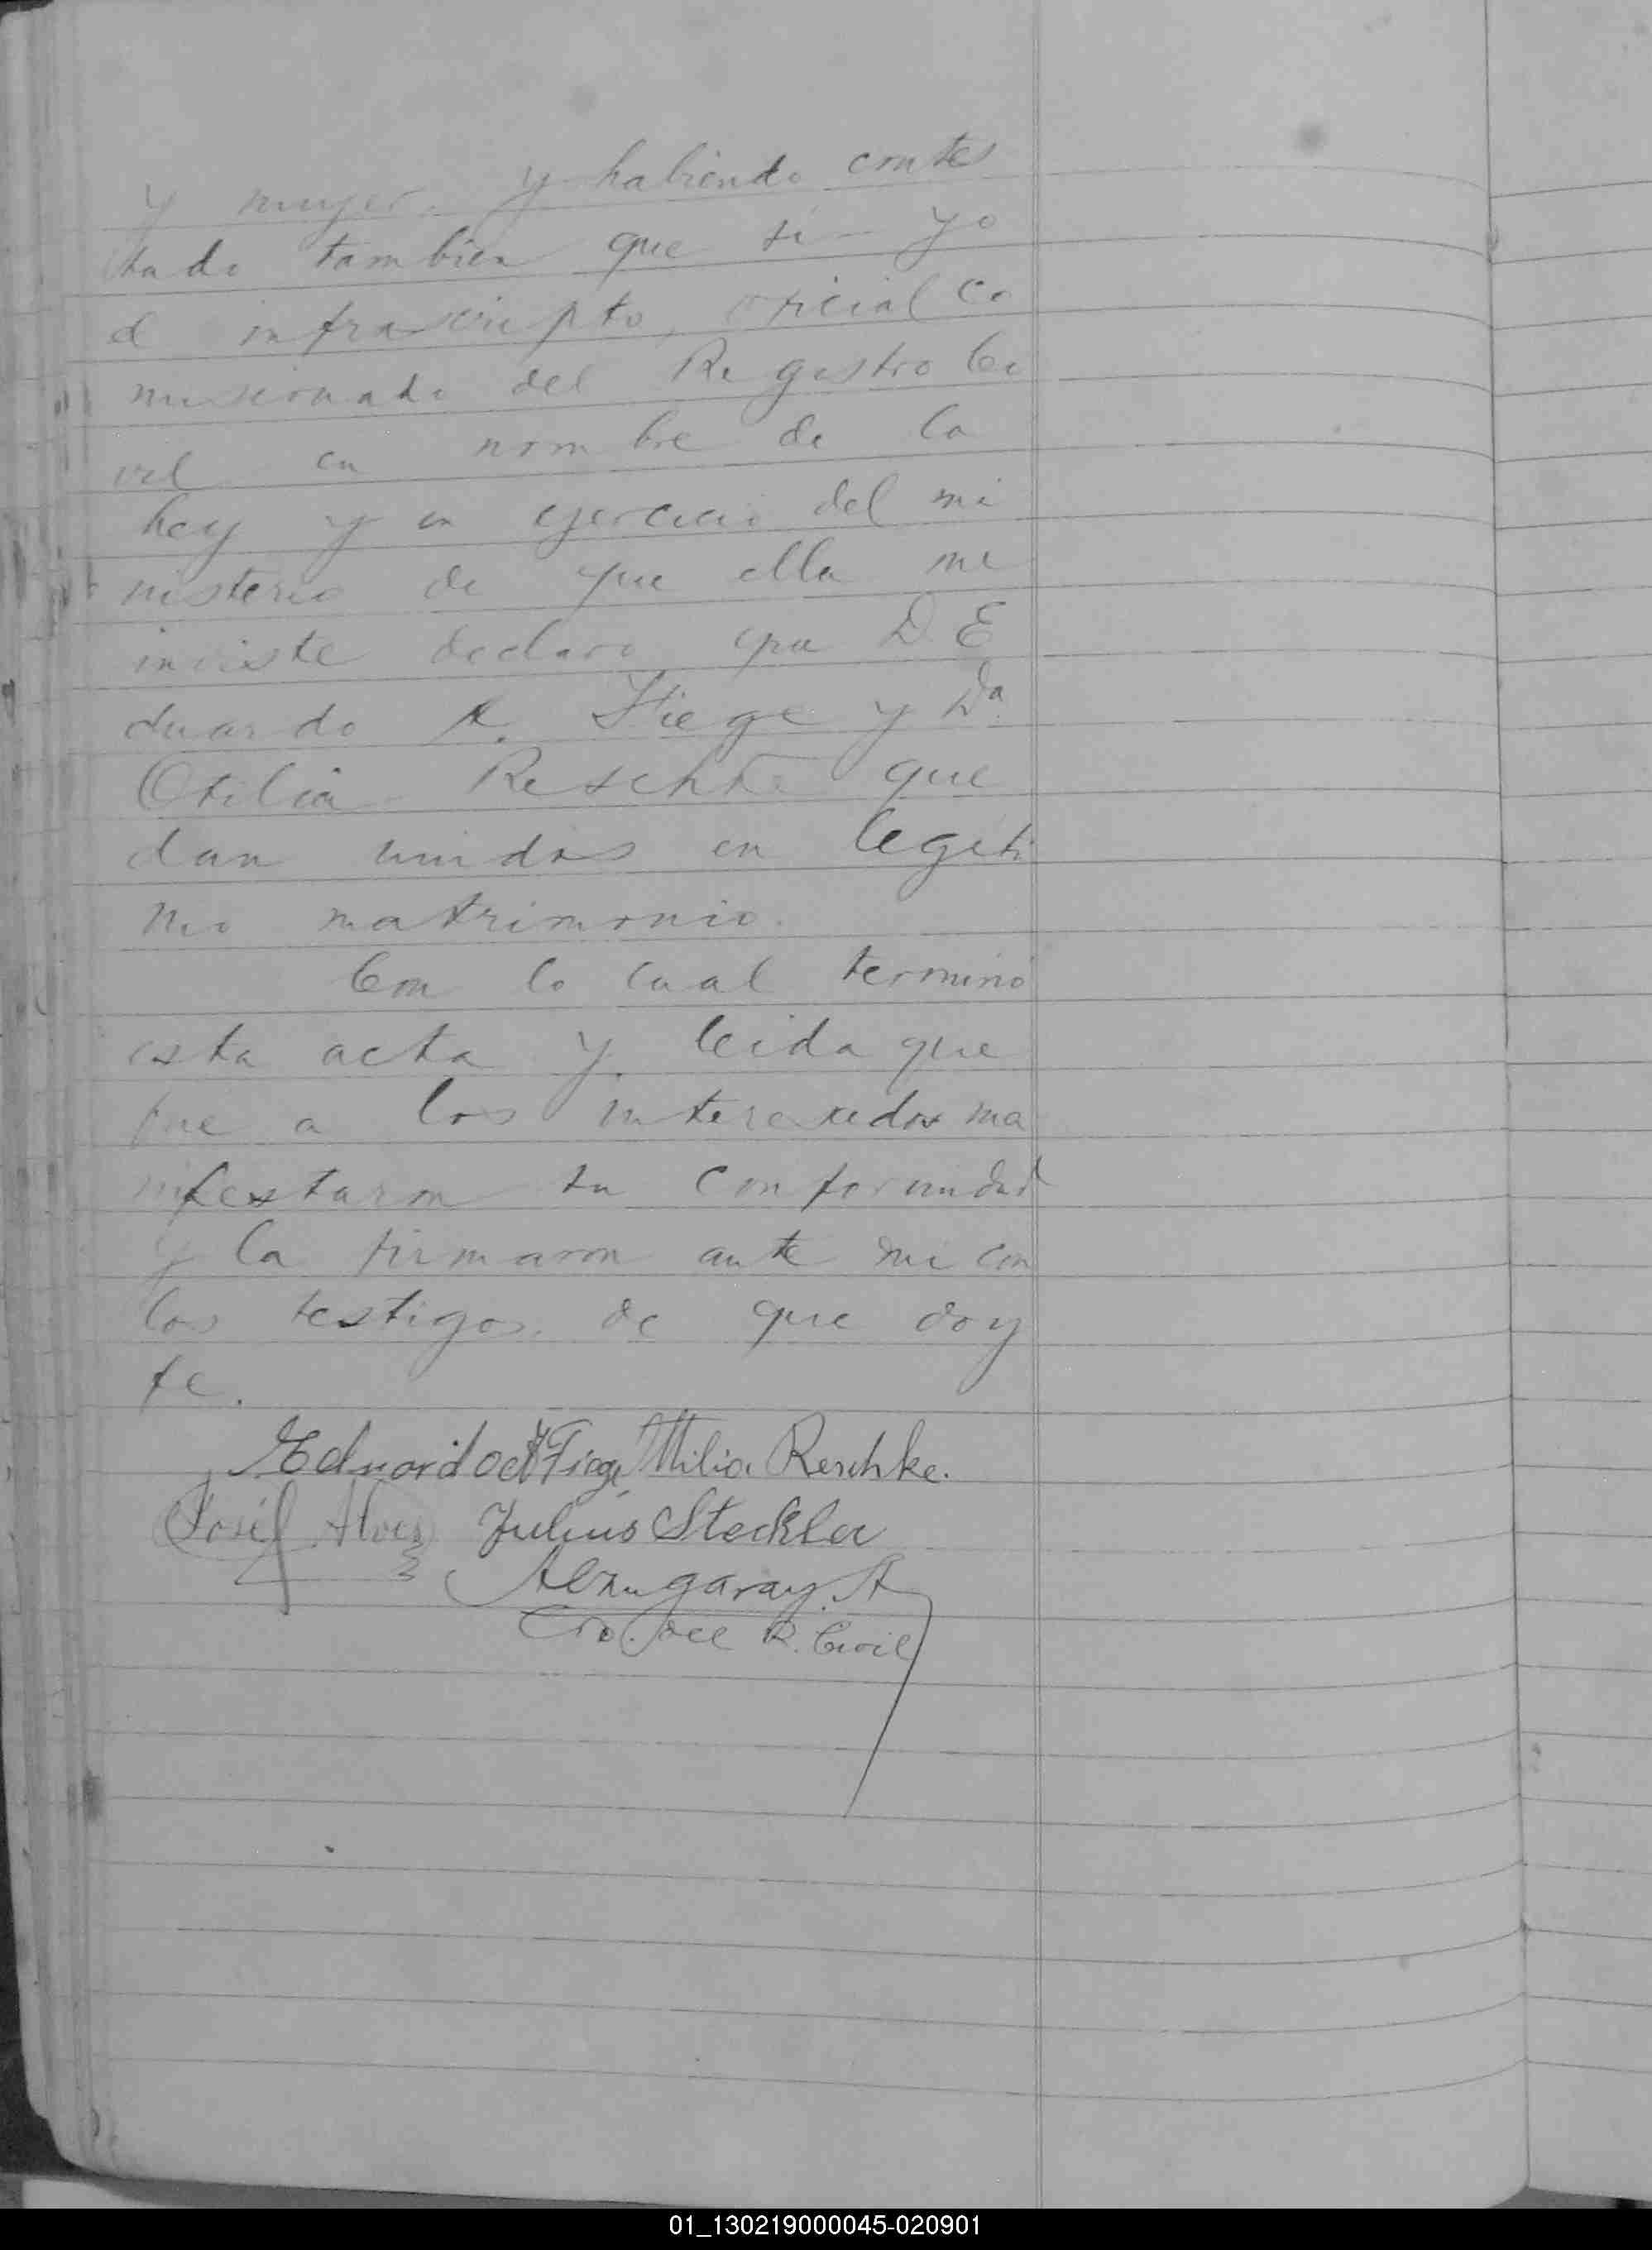 y mujer. Y habiendo contes
tado tambien que si yo
el infrascripto, oficial co
misionado del Registro Ci
vil en nombre de la
ley y en ejercicio del mi
nisterio de que ella me
inviste declaro que D. E
duardo A. Fiege y Dª
Otilia Reschke que
dan unidos en legiti
mo matrimonio.
Con lo cual terminó
esta acta y leida que
fue a los interesados ma
nifestaron su conformidad
y la firmaron ante mi con
los testigos, de que doy
fe.
Eduardo A Fiege Ottilia Reschke.
José Alves Julius Steckler
A
Cdo. del R. Civil
01_130219000045-020901